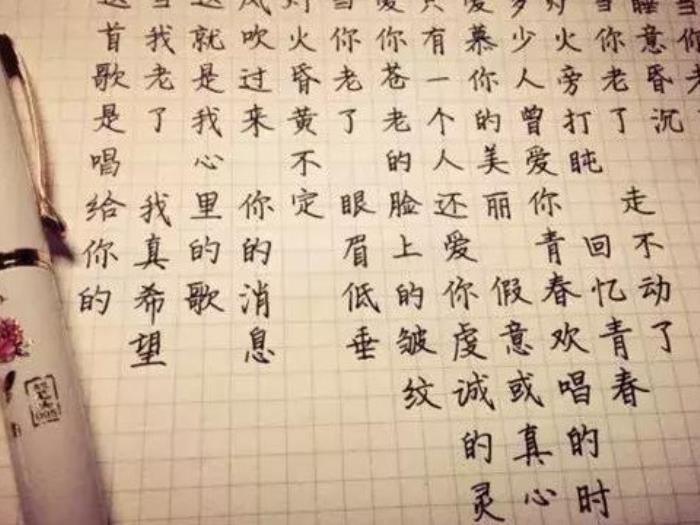 当你老
睡意昏沉
当你老了 走不动了
炉火旁打盹 回忆青春
多少人曾爱你青春欢唱的时
爱慕你的美丽 假意或真心
只有一个人还爱你虔诚的灵
爱你苍老的脸上的皱纹
当你老了 眼眉低垂
灯火昏黄不定
风吹过来 你的消息
这就是我心里的歌
当我老了 我真希望
这首歌是唱给你的